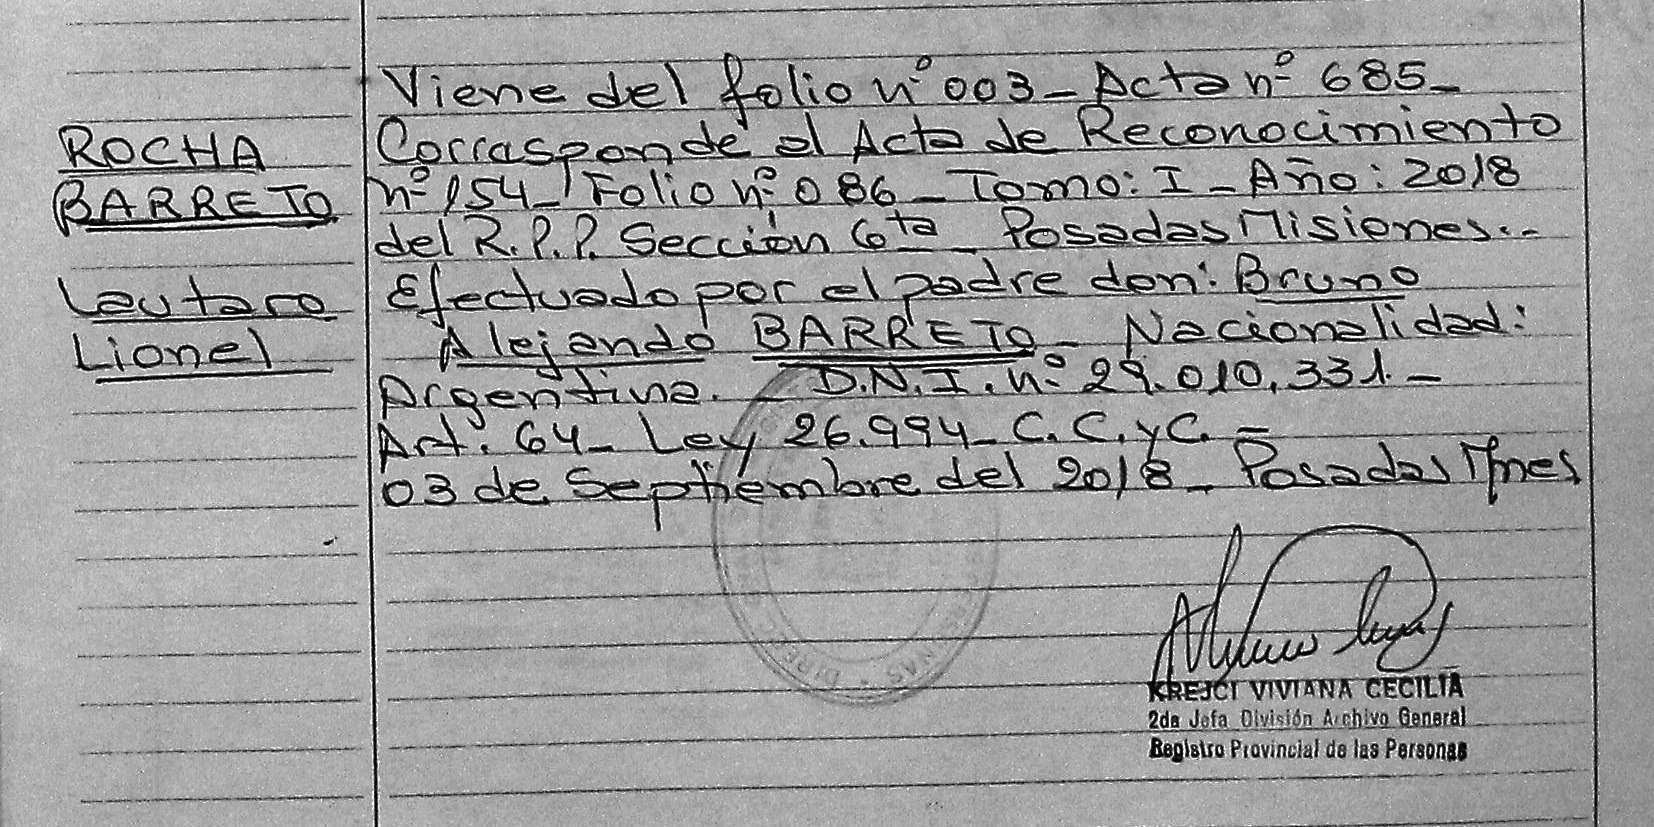 ROCHA
BARRETO
Lautaro
Lionel
Viene del folio nº 003_ Acta nº 685_
Corrasponde al Acta de Reconocimiento
nº 154_ Folio nº 086_ Tomo: I_ Año: 2018
del R.P.P. Sección 6ta_ Posadas Misiones.-
Efectuado por el padre don: Bruno
Alejando BARRETO_ Nacionalidad:
Argentina._ D.N.I. nº 29.010.331._
Art. 64_ Ley 26.994_ C.C.yC._
03 de Septiembre del 2018_ Posadas Mnes
KREJCI VIVIANA CECILIA
2da Jefa División Archivo General
Registro Provincial de las Personas